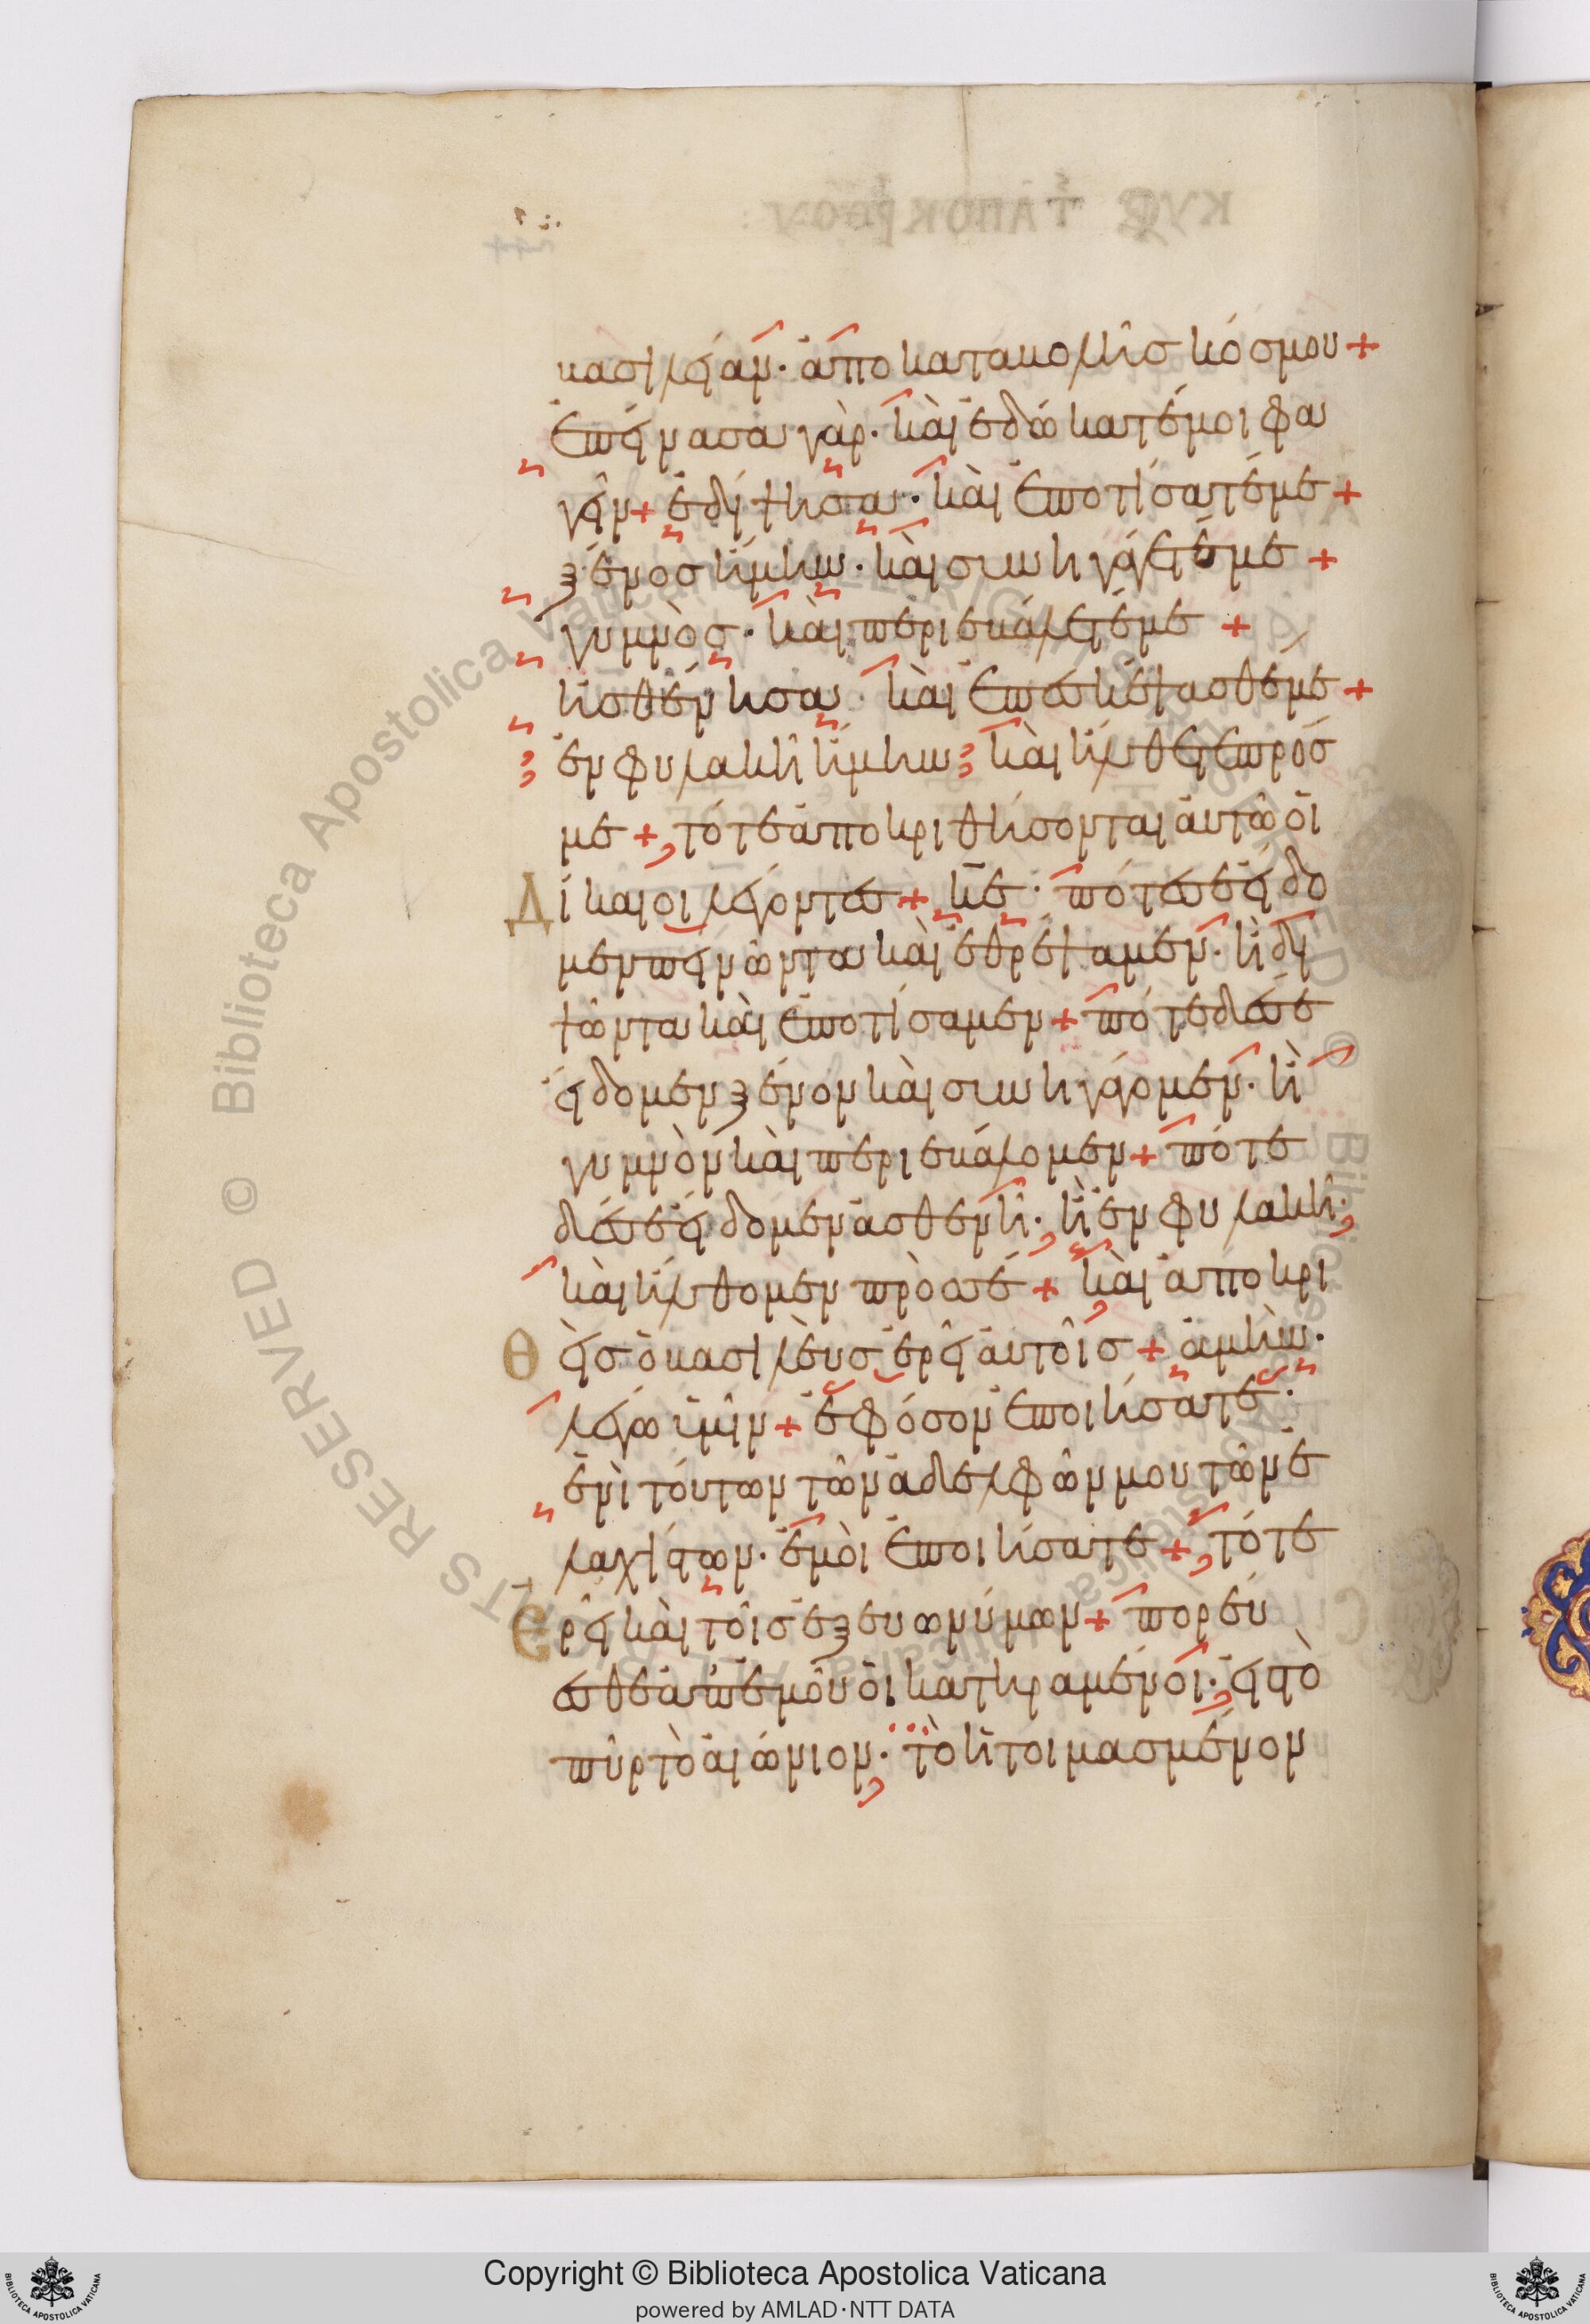 βασιλείαν· ἀπο καταβολῆς κόσμου +
ἐπείνασα γὰρ· καὶ ἐδώκατέ μοι φα
γεῖν + ἐδίψησα· καὶ ἐποτίσατέ με +
ξένος ἤμην· καὶ συνηγάγετέ με +
γυμνὸς· καὶ περιεβάλετέ με +
ἠσθένησα· καὶ ἐπεσκέψασθε με +
ἐν φυλακῇ ἤμην· καὶ ἤλθετε πρός
με + τότε ἀποκριθήσονται αὐτῶ οἱ
Δίκαιοι λέγοντες + κε· πότε σὲ εἴδο
μεν πεινῶντα καὶ ἐθρέψαμεν· ἢ δι
ψῶντα καὶ ἐποτίσαμεν + πότε δέ σε
εἴδομεν ξένον καὶ συνηγάγομεν· ἢ
γυμνὸν καὶ περιεβάλομεν + πότε
δέ σε εἴδομεν ἀσθενῆ· ἢ ἐν φυλακῇ·
καὶ ἤλθομεν πρὸς σέ + καὶ ἀποκρι
Θεὶς ὁ βασιλεὺς ἐρεῖ αὐτοῖς + ἀμὴν·
λέγω ὑμῖν + ἐφόσον ἐποιήσατε·
ἑνὶ τούτων τῶν ἀδελφῶν μου τῶν ἐ
λαχίστων· ἐμοὶ ἐποιήσατε + τότε
Ἐρεῖ καὶ τοῖς ἐξ εὐωνύμων + πορεύ
εσθε ἀπ ἐμοῦ οἱ κατηραμένοι· εἰς τὸ
πῦρ τὸ αἰώνιον· τὸ ἡτοιμασμένον
Copyright © Biblioteca Apostolica Vaticana
powered by AMLAD·NTT DATA